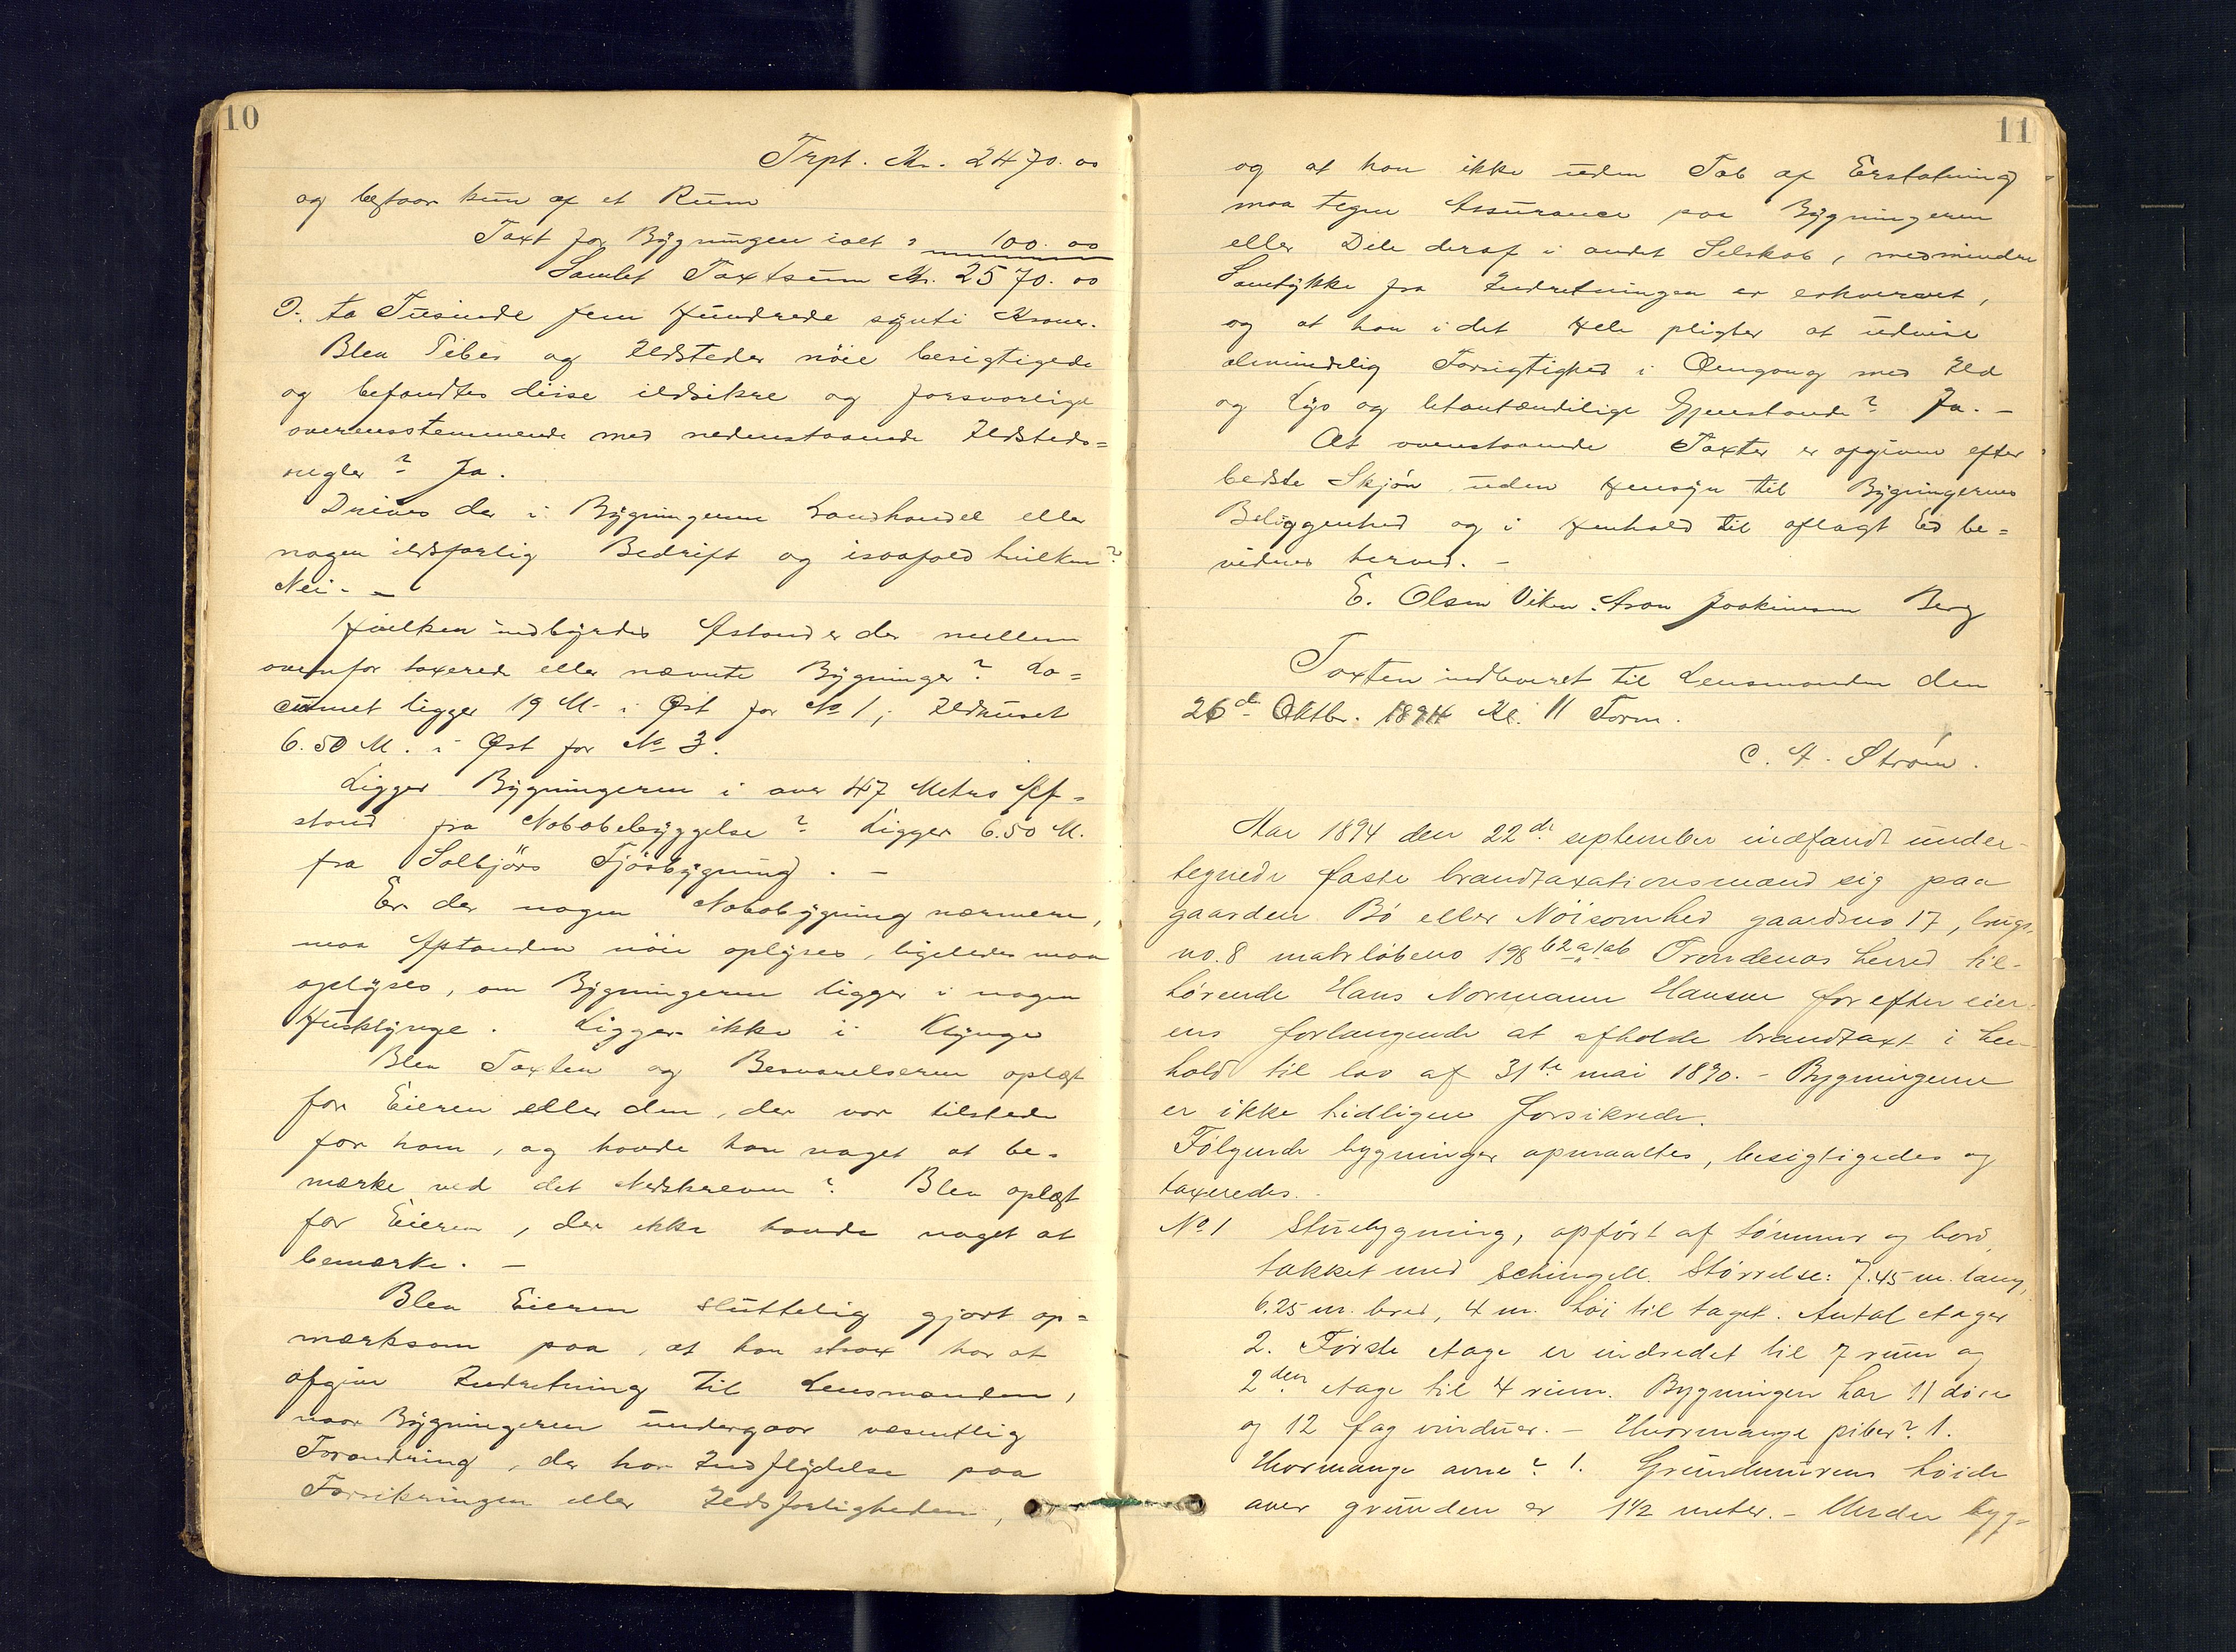 10
Trpt. Kr. 2470.00
og bestaar kun af et Rum
Taxt for Bygningen ialt " 100.00
Samlet Taxtsum Kr. 2570.00
D. to Tusinde fem Hundrede sýnti Kroner.
Blev Piber og Ildsteder nöie besigtigede
og befandtes disse ildsikre og forsvarlige
overensstemmende med nedenstaaende Ildsteds=
regler? Ja.
Drives der i Bygningerne Landhandel eller
nogen ildsfarlig Bedrift og isaafald hvilken?
Nei. -
Hvilken indbyrdes Afstand er der mellem
ovenfor taxerede eller nævnte Bygninger? Lo=
cumet ligger 19 M. i Øst for No 1; Ildhuset
6.50 M. i Øst for No 3.
Ligger Bygningerne i over 47 Metres Af=
stand fra Nabobebyggelse? Ligger 6.50 M.
fra Solbjörs Fjösbygning. -
Er der nogen Nabobygning nærmere,
maa Afstanden nöie oplyses, ligeledes maa
oplyses, om Bygningerne ligger i nogen
Husklynge. Ligger ikke i Klynge
Blev Taxten og Besvarelserne oplæst
for Eieren eller den, der var tilstede
for ham, og havde han noget at be=
mærke ved det Nedskrevne? Blev oplæst
for Eieren, der ikke havde noget at
bemærke. -
Blev Eieren sluttelig gjort op=
mærksom paa, at han strax har at
afgive Indretning til Lensmanden,
naar Bygningerne undergaar væsentlig
Forandring, der har Indflydelse paa
Forsikringen eller Ildsfarligheden,
11
og at han ikke uden Tab af Erstatning
maa tegne Assurance paa Bygningerne
eller Dele deraf i andet Selskab, medmindre
Samtykke fra Indretningen er erhvervet,
og at han i det Hele pligter at udvise
almindelig Forsigtighed i Omgang med Ild
og Lys og letantændelige Gjenstande? Ja. -
At ovenstaaende Taxter er afgivne efter
bedste Skjön uden Hensyn til Bygningernes
Beliggenhed og i Henhold til aflagt Ed be=
vidnes herved. -
E. Olsen Viken. Aron Joakimsen Berg
Taxten indleveret til Lensmanden den
26de Oktbr. 1894 Kl. 11 Form.
C. A. Ström.
Aar 1894 den 22de september indfandt under-
tegnede faste brandtaxationsmænd sig paa
gaarden Bö eller Nöisomhed gaardsno 17, brugs-
no. 8 matr löbeno 198 b2a1ab Trondenas herred til-
hörende Hans Normann Hansen for efter eier-
ens forlangende at afholde brandtaxt i hen-
hold til lov af 31te mai 1890. - Bygningerne
er ikke tidligere forsikrede.
Fölgende bygninger opmaaltes, besigtigedes og
taxeredes.
No 1 Stuebygning, opfört af tömmer og bord,
takket med schingell. Störrelse: 7.45 m. lang,
6.25 m. bred, 4 m. höi til taget. Antal etager
2. Förste etage er indredet til 7 rum og
2den etage til 4 rum. Bygningen har 11 döre
og 12 fag vinduer. - Hvormange piber? 1.
Hvormange ovne? 1. Grundmurens höide
over grunden er 1½ meter. - Under byg=